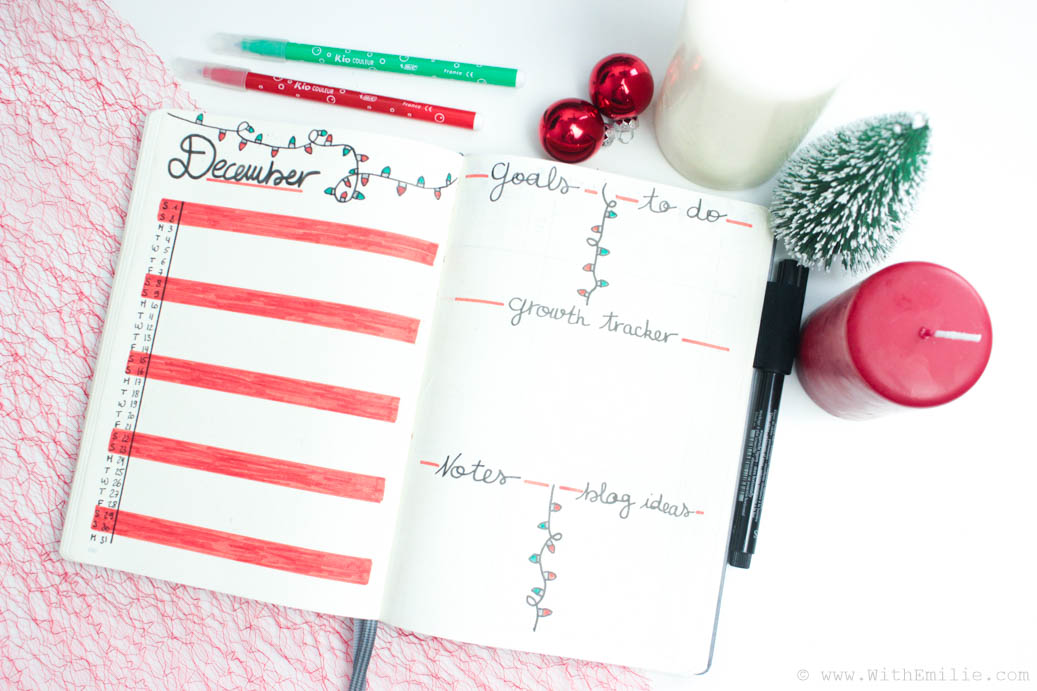 Kid COULEUR BIC France CE
Kid COULEUR BIC France CE
December
S 1
S 2
M 3
T 4
W 5
T 6
F 7
S 8
S 9
M 10
T 11
W 12
T 13
F 14
S 15
S 16
M 17
T 18
W 19
T 20
F 21
S 22
S 23
M 24
T 25
W 26
T 27
F 28
S 29
S 30
M 31
Goals
to do
growth tracker
Notes
blog ideas
© www.WithEmilie.com